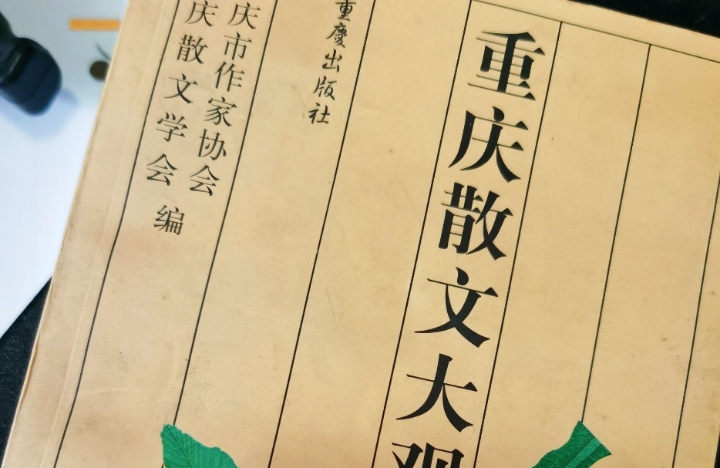 重庆散文大观
重慶出版社
庆市作家协会
庆散文学会 编